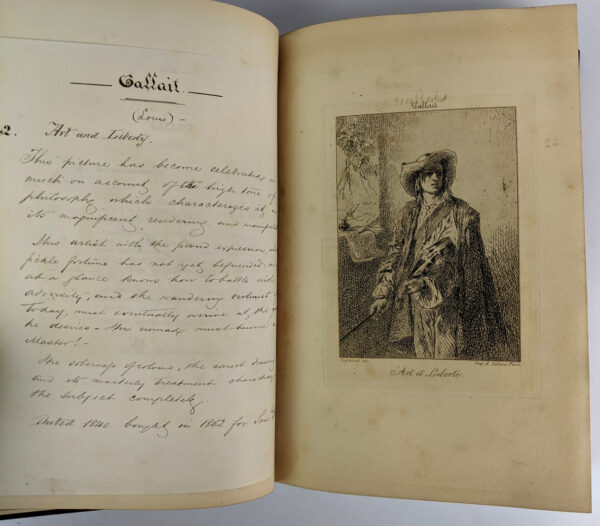 Gallait.
(Louis) -
2. Art and Liberty.
This picture has become celebrated as
much on account of the high tone of
philosophy which characterizes it as
its magnificent rendering and
This artist with the proud expression,
fickle fortune has not yet befriended
at a glance knows how to battle with
adversity, and the wandering violinist
today, must eventually arrive at the
he desires - This nomad must become a
Master! -
The soberness of colours, the correct drawing
and its masterly treatment
the subject completely
Dated 1840. bought in 1862 for
Gallait
Art et Liberté